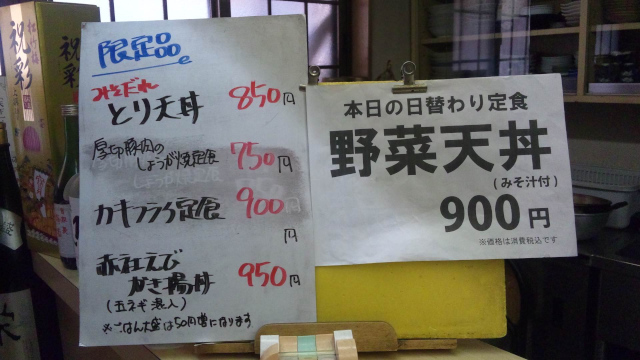 限定品
みそだれ
とり天丼 850円
厚切豚肉の
しょうが焼定食 750円
カキフライ定食 900
円
赤エビ
かき揚丼 950円
(玉ネギ混入)
※ごはん大盛は50円増になります
本日の日替わり定食
野菜天丼
(みそ汁付)
900円
※価格は消費税込です
祝彩